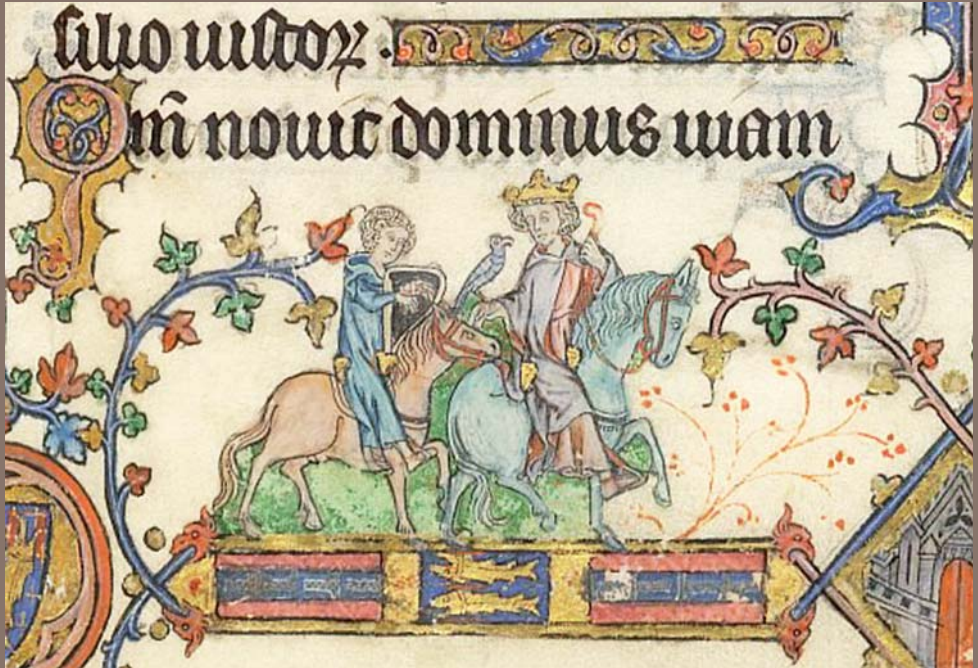 silio iustoꝝ.
Qm̄ nouit dominus uiam